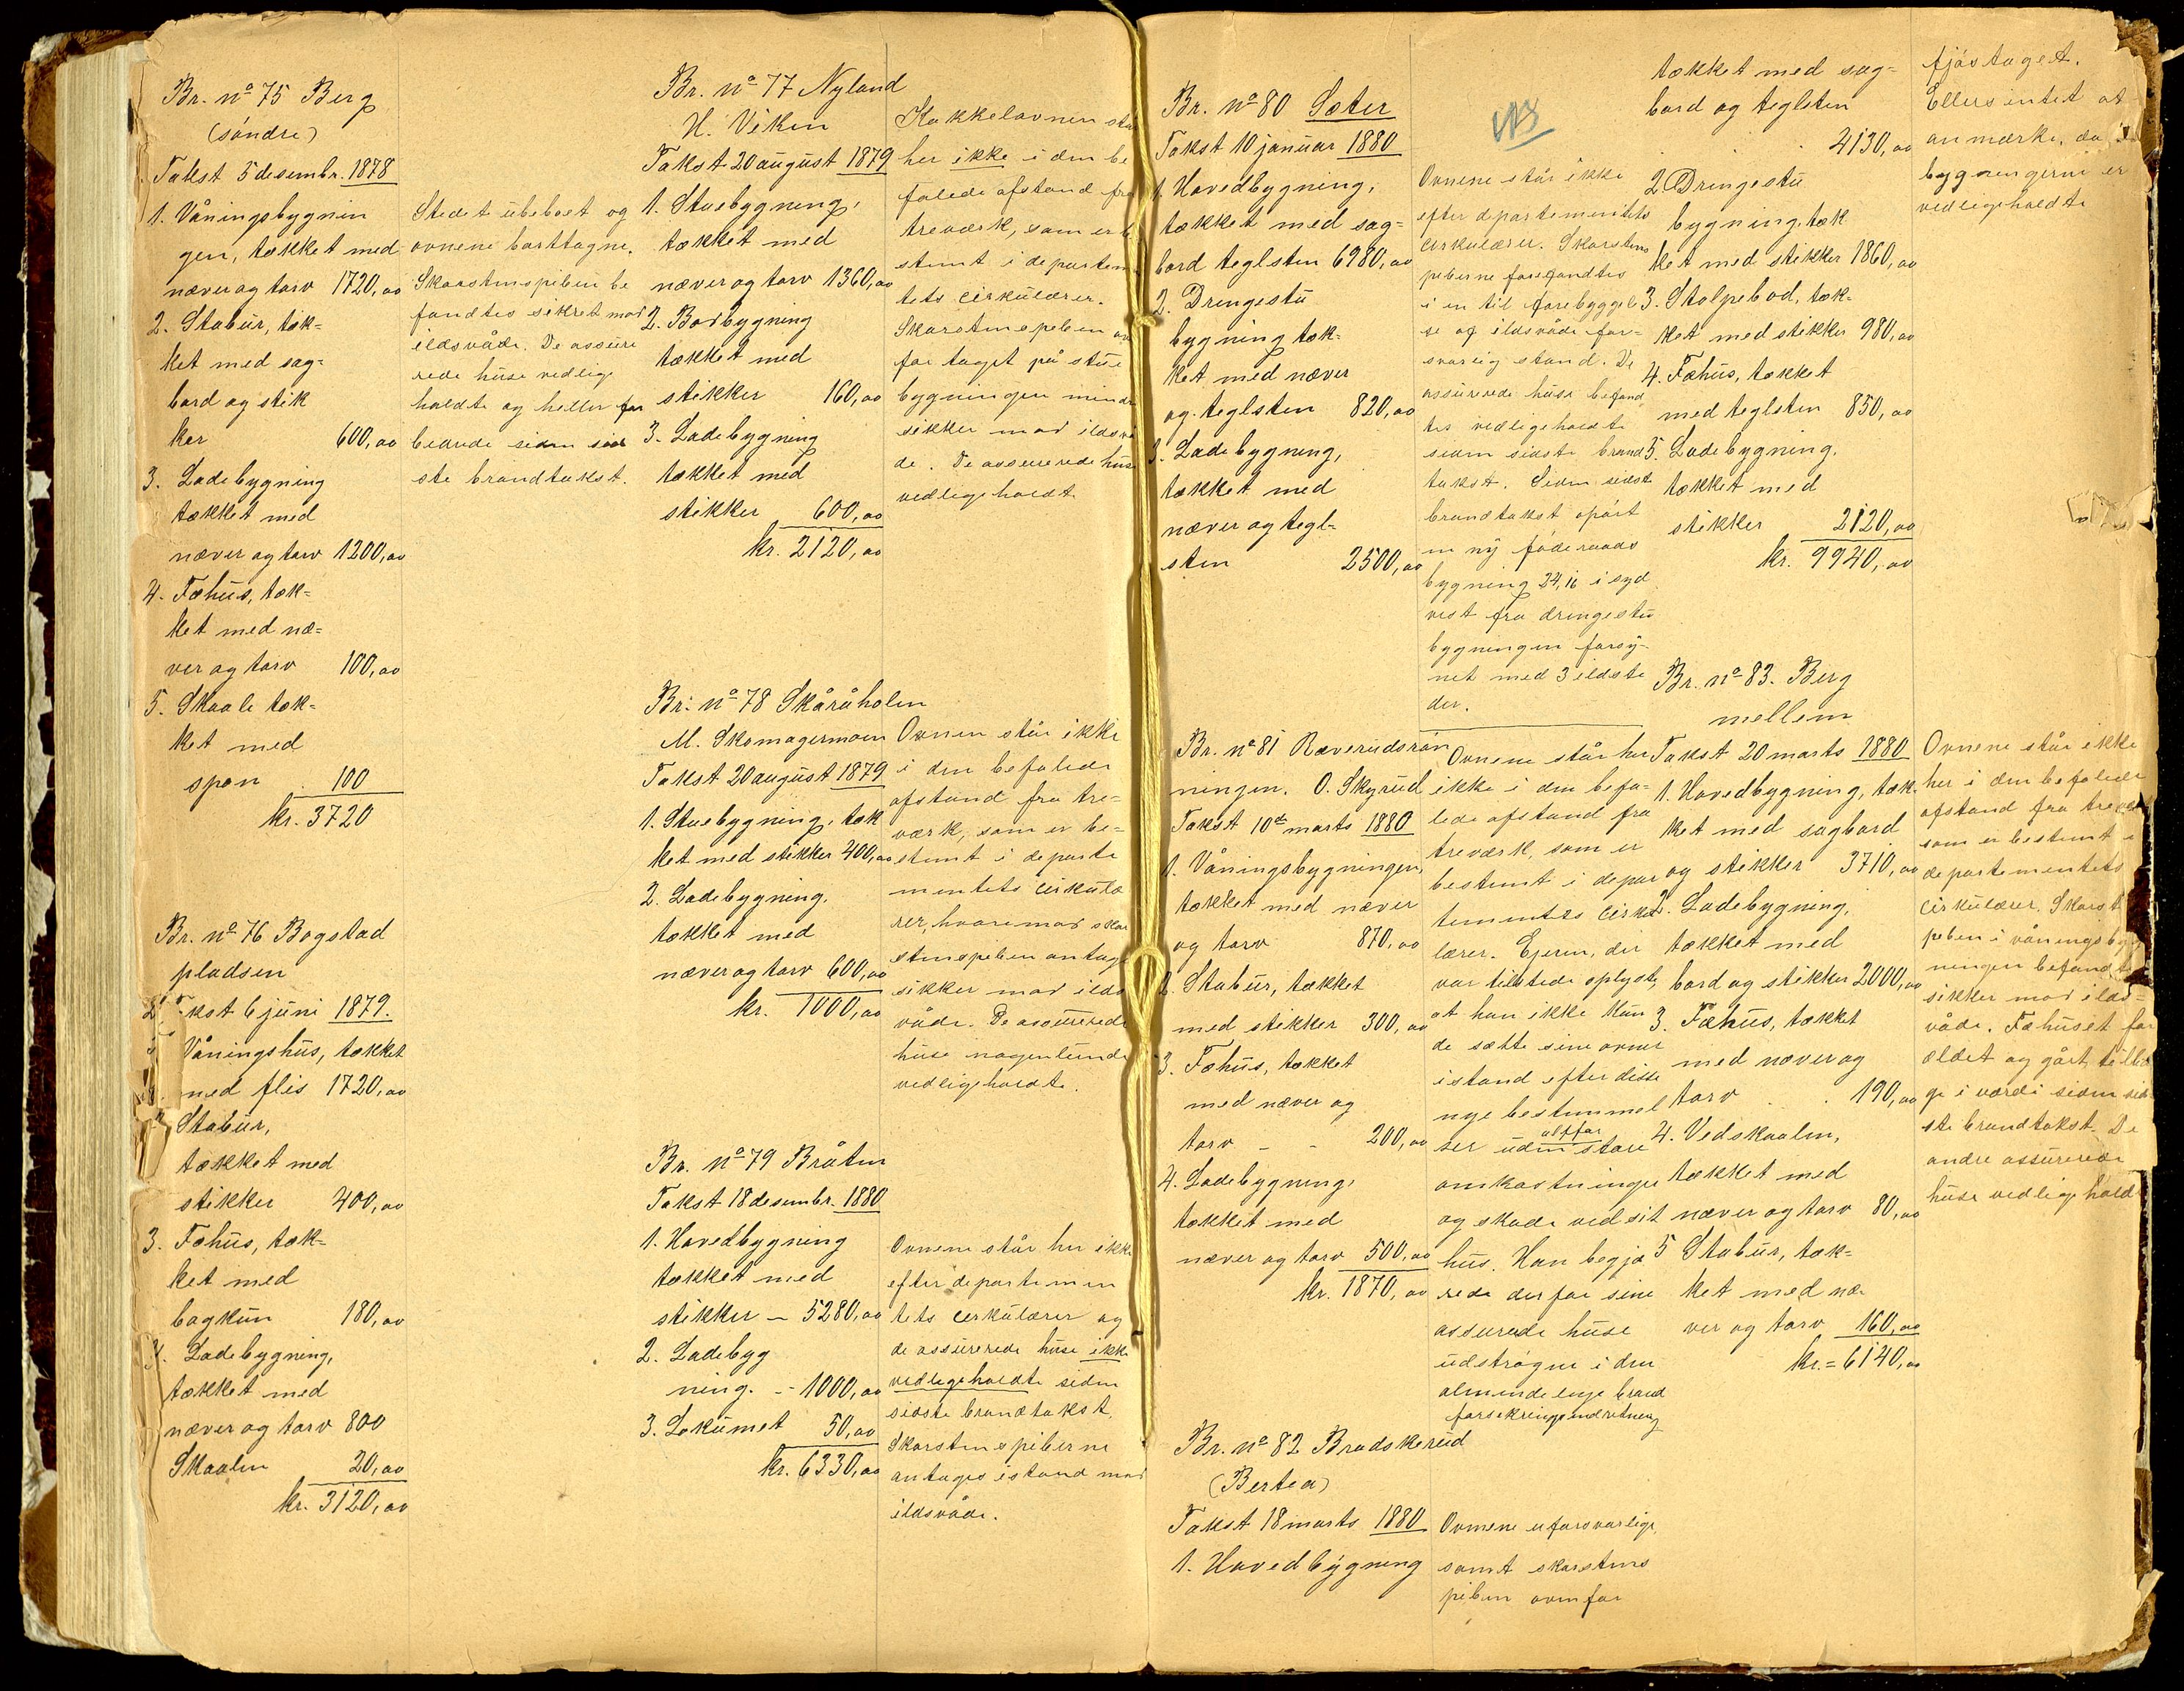 Br. nº 75 Berg
(søndre)
Takst 5 desembr. 1878
1. Våningsbygnin
gen, tækket med
næver og torv 1720,00
2. Stabur, tæk=
ket med sag=
bord og stik
ker 600,00
3. Ladebygning
tækket med
næver og torv 1200,00
4. Fæhus, tæk=
ket med næ=
ver og torv 100,00
5. Skaale tæk=
ket med
spon 100
kr. 3720
Stedet ubeboet og
ovnene borttagne.
Skorstenspiben be
fandtes sikret mod
ildsvåde. De assure
rede huse vedlige
holdte og heller for
bedrede siden sid
ste brandtakst.
Br. nº 76 Bogstad
pladsen
Takst 6 juni 1879.
Våningshus, tækket
med flis 1720,00
Stabur,
tækket med
stikker 400,00
3. Fæhus, tæk=
ket med
bagkun 180,00
4. Ladebygning,
tækket med
næver og torv 800
Skaalen 20,00
kr. 3120,00
Br. nº 77 Nyland
H. Viken
Takst 20 august 1879
1. Stuebygning,
tækket med
næver og torv 1360,00
2. Bodbygning
tækket med
stikker 160,00
3. Ladebygning
tækket med
stikker 600,00
kr. 2120,00
Kakkelovnen står
her ikke i den be
falede afstand fra
treværk, som er be
stemt i departemen
tets cirkulærer.
Skorstenspiben oven
for taget på stue
bygningen mindre
sikker mod ildsvå
de. De assurerede huse
vedligeholdt.
Br. nº 78 Skåråholen
M. Skomagermoen
Takst 20 august 1879
1. Stuebygning, tæk
ket med stikker 400,00
2. Ladebygning,
tækket med
næver og torv 600,00
kr. 1000,00
Ovnen står ikke
i den befalede
afstand fra tre=
værk, som er be=
stemt i departe
mentets cirkulæ
rer, hvorimod skor
stenspiben antages
sikker mod ilds
våde. De assurerede
huse nogenlunde
vedligeholdt.
Br. nº 79 Bråten
Takst 18 desembr. 1880
1. Hovedbygning
tækket med
stikker - 5280,00
2. Ladebyg
ning. - - 1000,00
3. Lokumet 50,00
kr. 6330,00
Ovnene står her ikke
efter departemen
tets cirkulærer og
de assurerede huse ikke
vedligeholdt siden
sidste brandtakst.
Skorstenspiberne
antages istand mod
ildsvåde.
Br. nº 80 Sæter
Takst 10 januar 1880
1. Hovedbygning,
tækket med sag=
bord teglsten 6980,00
2. Drengestu
bygning tæk=
ket med næver
og teglsten 820,00
3. Ladebygning,
tækket med
næver og tegl=
sten 2500,00
Ovnene står ikke
efter departementets
cirkulærer. Skorstens
piberne forefandtes
i en til forebyggel
se af ildsvåde for=
svarlig stand. De
assurerede huse befand
tes vedligeholdte
siden sidste brand
takst. Siden sidst
brandtakst opført
en ny føderaads
bygning 24,16 i syd
vest fra drengestu
bygningen forsy=
net med 3 ildste
der.
Br. nº 81 Ræverudsrøn
ningen. O. Skyrud
Takst 10de marts 1880
1. Våningsbygningen,
tækket med næver
og torv 870,00
2. Stabur, tækket
med stikker 300,00
3. Fæhus, tækket
med næver og
torv - - 200,00
4. Ladebygning,
tækket med
næver og torv 500,00
kr. 1870,00
Ovnene står her
ikke i den befa=
lede afstand fra
treværk, som er
bestemt i depar
tementets cirku
lærer. Ejeren, der
var tilstede oplyste
at han ikke kun
de sætte sine ovner
istand efter disse
nye bestemmel
ser uden altfor store
omkostninger
og skade ved sit
hus. Han begjæ
rede derfor sine
assurede huse
udstrøgne i den
almindelige brand
forsikringsindretning
Br. nº 82 Bradskerud
(Bertea)
Takst 18 marts 1880
1. Hovedbygning
Ovnene uforsvarlige,
samt skorstens
piben ovenfor
tækket med sag=
bord og teglsten
4130,00
2. Drengestu
bygning, tæk
ket med stikker 1860,00
3. Stolpebod, tæk=
ket med stikker 980,00
4. Fæhus, tækket
med teglsten 850,00
5. Ladebygning,
tækket med
stikker 2120,00
kr. 9940,00
fjøstaget.
Ellers intet at
anmærke, da
bygningerne er
vedligeholdte
Br. nº 83. Berg
mellem
Takst 20 marts 1880
1. Hovedbygning, tæk=
ket med sagbord
og stikker 3710,00
2. Ladebygning,
tækket med
bord og stikker 2000,00
3. Fæhus, tækket
med næver og
torv . . 190,00
4. Vedskaalen,
tækket med
næver og torv 80,00
5 Stabur, tæk=
ket med næ=
ver og torv 160,00
kr. = 6140,00
Ovnene står ikke
her i den befalede
afstand fra treværk
som er bestemt i
departementets
cirkulærer. Skorst
piben i våningsbyg
ningen befandtes
sikker mod ilds=
våde. Fæhuset for
ældet og gået tilba
ge i værdi siden sid
ste brandtakst. De
andre assurerede
huse vedligeholdt